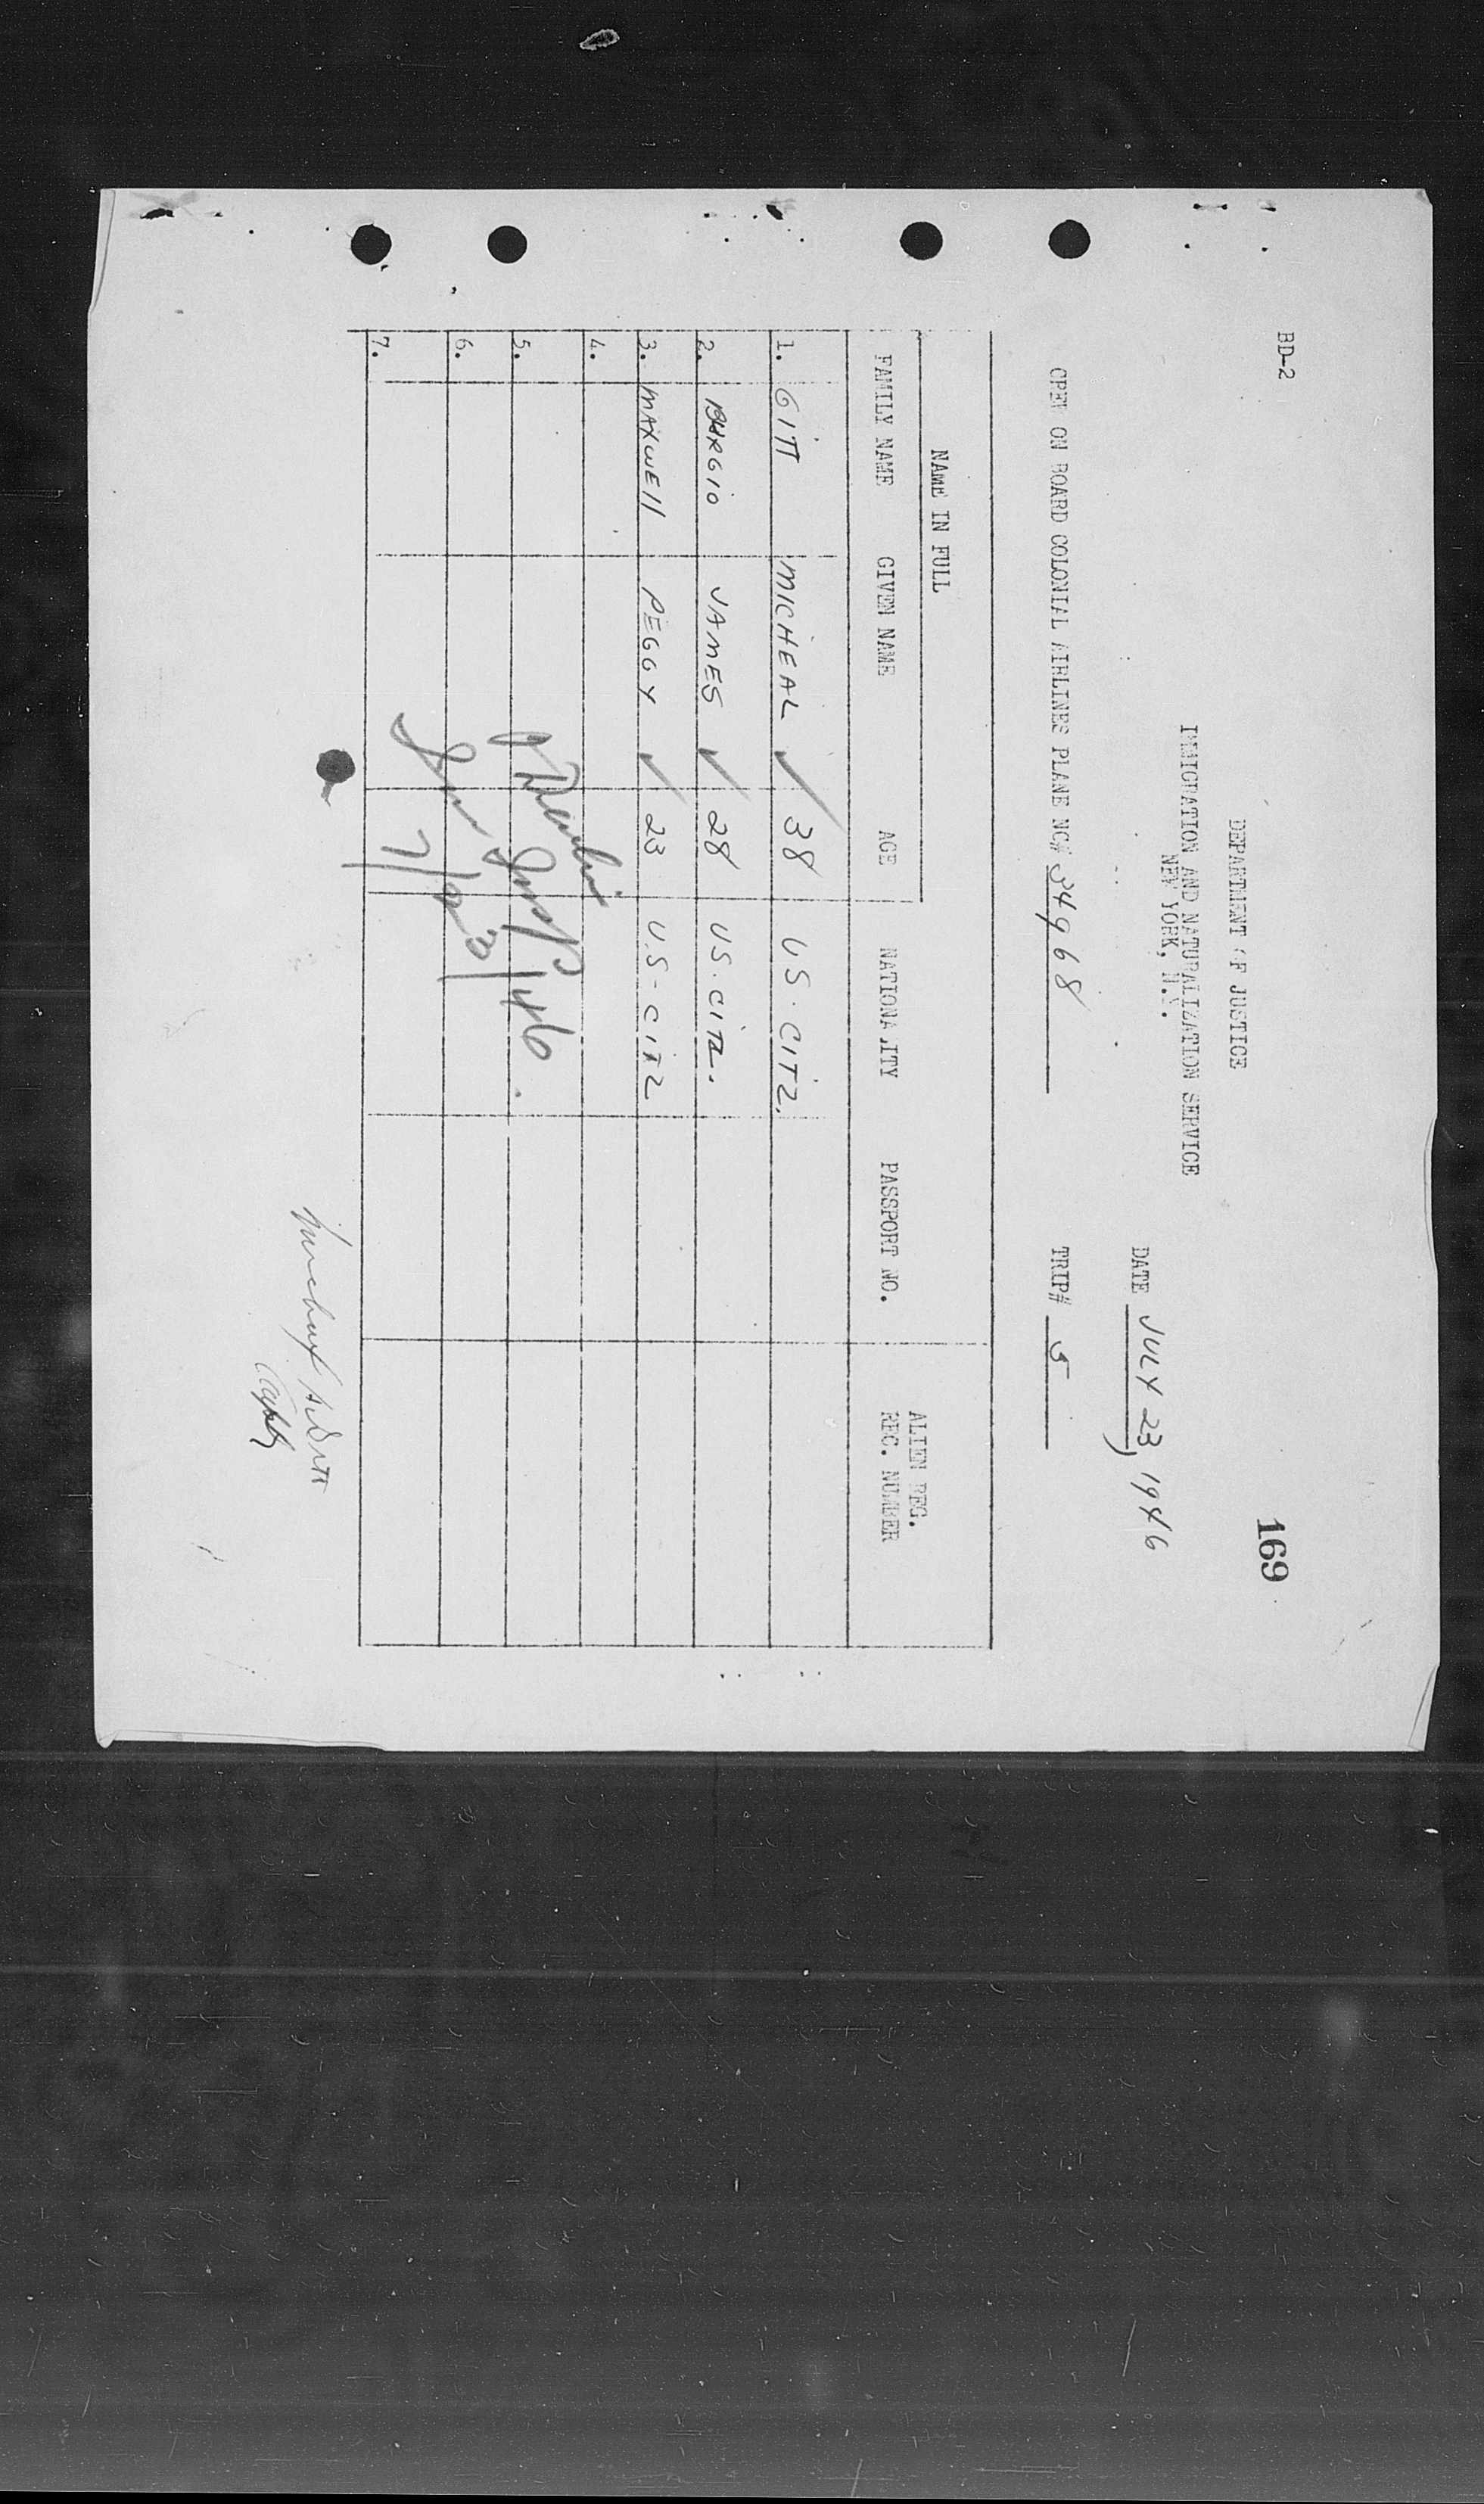 BD-2
169
DEPARTMENT OF JUSTICE
IMMIGRATION AND NATURALIZATION SERVICE
NEW YORK, N.Y.
DATE JULY 23, 1946
CREW ON BOARD COLONIAL AIRLINES PLANE NC# 34968 TRIP# 5
NAME IN FULL
ALIEN REG.
FAMILY NAME GIVEN NAME AGE NATIONALITY PASSPORT NO. REC. NUMBER
1. GITT MICHEAL ✓ 38 U.S. CITZ.
2. BURGIO JAMES ✓ 28 US. CITZ.
3. MAXWEll PEGGY ✓ 23 U.S-CITZ
4.
5.
6.
7.
7/23/46